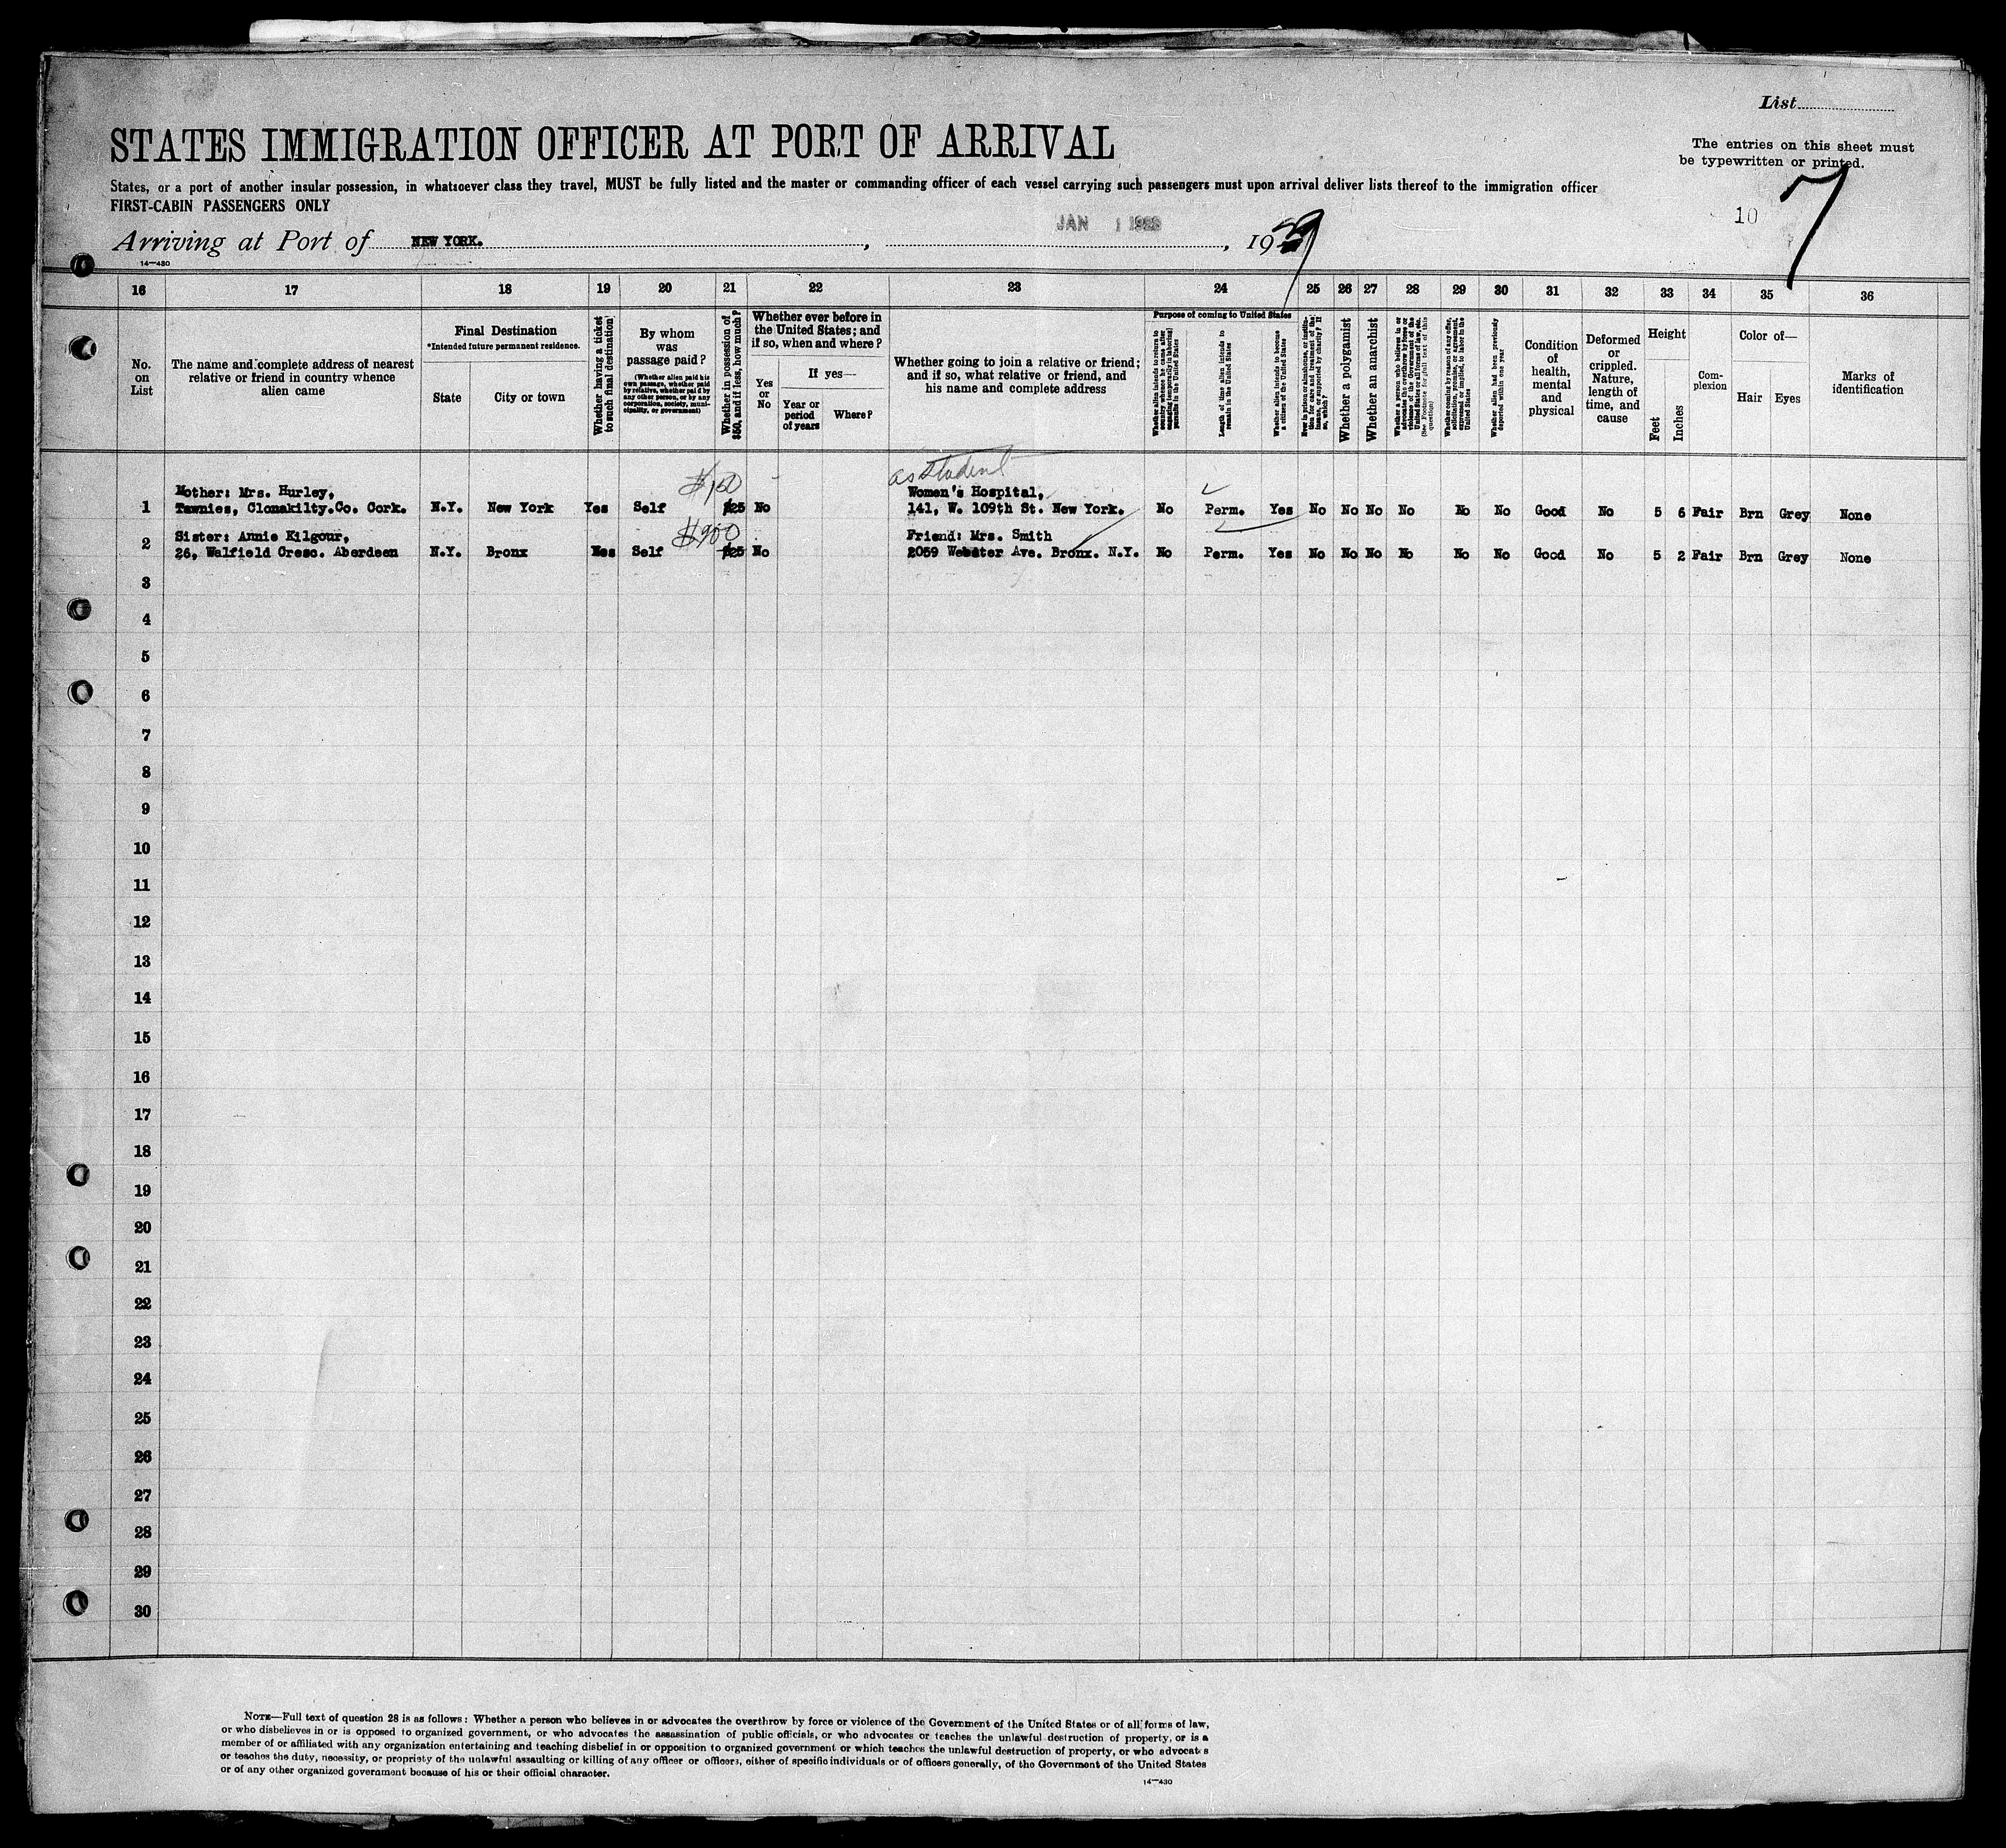 List
STATES IMMIGRATION OFFICER AT PORT OF ARRIVAL
The entries on this sheet must
be typewritten or printed.
States, or a port of another insular possession, in whatsoever class they travel, MUST be fully listed and the master or commanding officer of each vessel carrying such passengers must upon arrival deliver lists thereof to the immigration officer
FIRST-CABIN PASSENGERS ONLY
10 7
Arriving at Port of NEW YORK. , JAN 1 , 19
14—430
16 17 18 19 20 21 22 23 24 25 26 27 28 29 30 31 32 33 34 35 36
No. on List
The name and complete address of nearest
relative or friend in country whence
alien came
Final Destination
*Intended future permanent residence.
State
City or town
Whether having a ticket
to such final destination
By whom
was
passage paid?
(Whether alien paid his
own passage, whether paid
by relative, whether paid by
any other person, or by any
corporation, society, muni-
cipality, or government)
Whether in possession of
$50, and if less, how much?
Whether ever before in
the United States; and
if so, when and where?
Yes
or
No
If yes—
Year or
period
of years
Where?
Whether going to join a relative or friend;
and if so, what relative or friend, and
his name and complete address
Purpose of coming to United States
Whether alien intends to return to
country whence he came after
engaging temporarily in laboring
pursuits in the United States
Length of time alien intends to
remain in the United States
Whether alien intends to become
a citizen of the United States
Ever in prison or almshouse, or institu-
tion for care and treatment of the
insane, or supported by charity? If
so, which?
Whether a polygamist
Whether an anarchist
Whether a person who believes in or
advocates the overthrow by force or
violence of the Government of the
United States or all forms of law, etc.
(See Footnote for full text of this
question)
Whether coming by reason of any offer,
solicitation, promise, or agreement,
expressed or implied, to labor in the
United States
Whether alien had been previously
deported within one year
Condition
of
health,
mental
and
physical
Deformed
or
crippled.
Nature,
length of
time, and
cause
Height
Feet
Inches
Com-
plexion
Color of—
Hair
Eyes
Marks of
identification
$150 as Student
Mother: Mrs. Hurley, Women's Hospital,
1 Tawnies, Clonakilty.Co. Cork. N.Y. New York Yes Self $25 No 141, W. 109th St. New York. No Perm. Yes No No No No No No Good No 5 6 Fair Brn Grey None
$900
Sister: Annie Kilgour, Friend: Mrs. Smith
2 26, Walfield Cresc. Aberdeen N.Y. Bronx Yes Self $25 No 2059 Webster Ave. Bronx. N.Y. No Perm. Yes No No No No No No Good No 5 2 Fair Brn Grey None
3
4
5
6
7
8
9
10
11
12
13
14
15
16
17
18
19
20
21
22
23
24
25
26
27
28
29
30
NOTE—Full text of question 28 is as follows: Whether a person who believes in or advocates the overthrow by force or violence of the Government of the United States or of all forms of law,
or who disbelieves in or is opposed to organized government, or who advocates the assassination of public officials, or who advocates or teaches the unlawful destruction of property, or is a
member of or affiliated with any organization entertaining and teaching disbelief in or opposition to organized government or which teaches the unlawful destruction of property, or who advocates
or teaches the duty, necessity, or propriety of the unlawful assaulting or killing of any officer or officers, either of specific individuals or of officers generally, of the Government of the United States
or of any other organized government because of his or their official character.
14—430